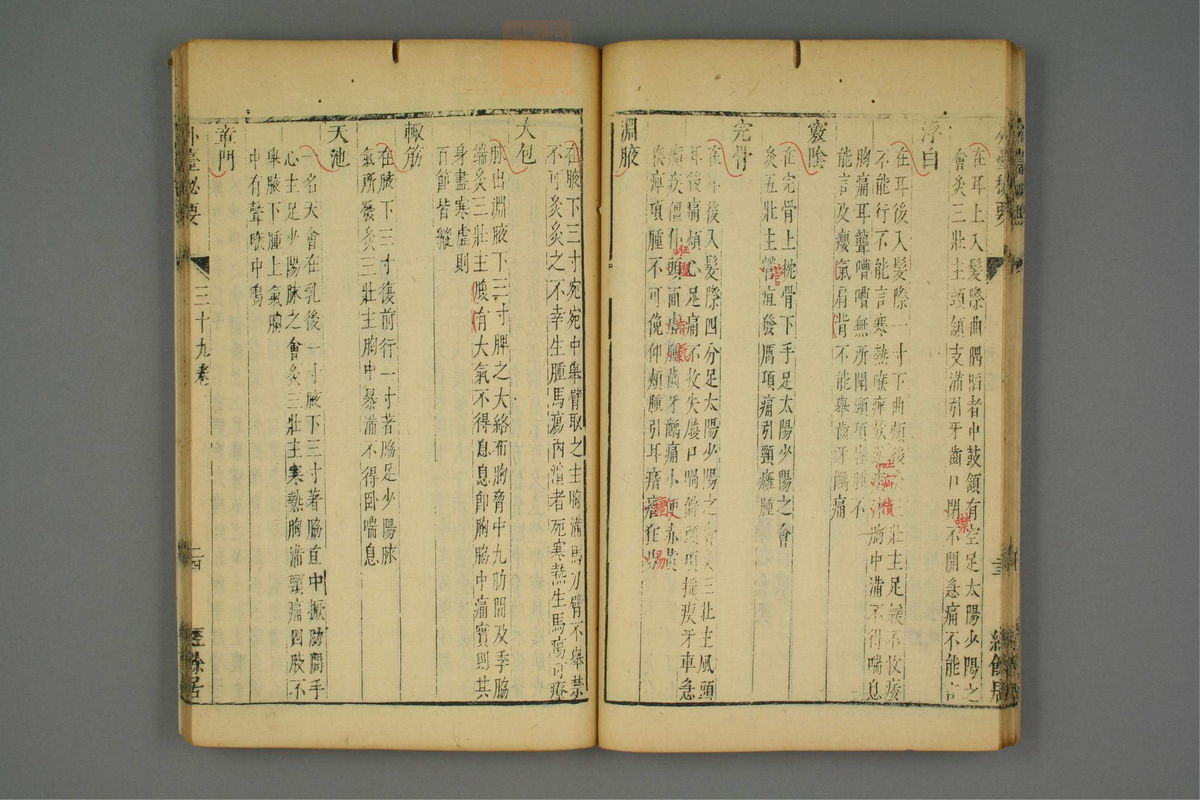 在耳上入髮際曲隅陷者中鼓頷有空足太陽少陽之
會灸三壯主頸頷支滿引牙齒口閉不開急痛不能言
浮白
在耳後入髮際一寸
不能行不能言寒熱喉痺 胸中滿不得喘息
胸痛耳聾嘈嘈無所聞頸項
能言及癭氣肩背不能舉齒牙齲痛
竅陰
在完骨上枕骨下手足太陽少陽之會
灸五壯主 疽發厲項痛引頸癰腫
完骨
在耳後入髮際四分足太陽少陽之會灸三壯主風頭
耳後痛煩心足痛不收失履口喎僻頭項搖瘈牙車急
癲疾僵仆 頭面 齒牙齲痛小便赤黃
喉痺項腫不可俛仰頰腫引耳
淵腋
在腋下三寸宛宛中舉臂取之主胸滿馬刀臂不舉禁
不可灸灸之不幸生腫馬瘍內潰者死寒熱生馬瘍可療
大包
脉出淵腋下三寸脾之大絡布胸脅中九肋間及季脇
端灸三壯主腹有大氣不得息息即胸脇中痛實則其
身盡寒虛則
百節皆縱
輒筋
在腋下三寸復前行一寸著脇足少陽脉
氣所發灸三壯主胸中暴滿不得卧喘息
天池
一名天會在乳後一寸腋下三寸著脇直中撅肋間手
心主足少陽脉之會灸三壯主寒熱胸滿頸痛四肢不
舉腋下腫上氣胸
中有聲喉中鳴
章門
外臺秘要
三十九卷
二四
經餘居